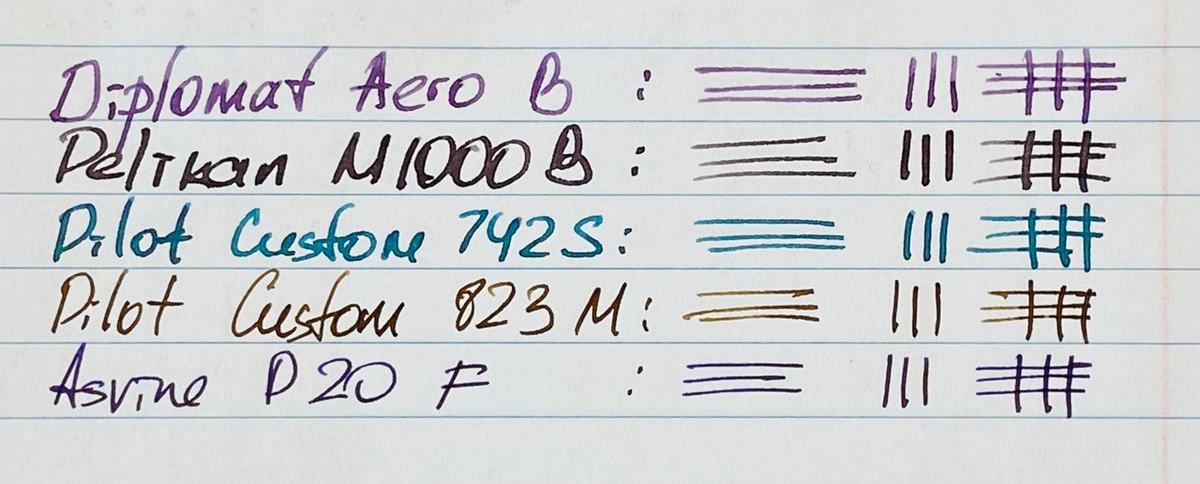 Diplomat Aero B :
Pelikan M1000 B :
Pilot Custom 742 S :
Pilot Custom 823 M :
Asvine P20 F :